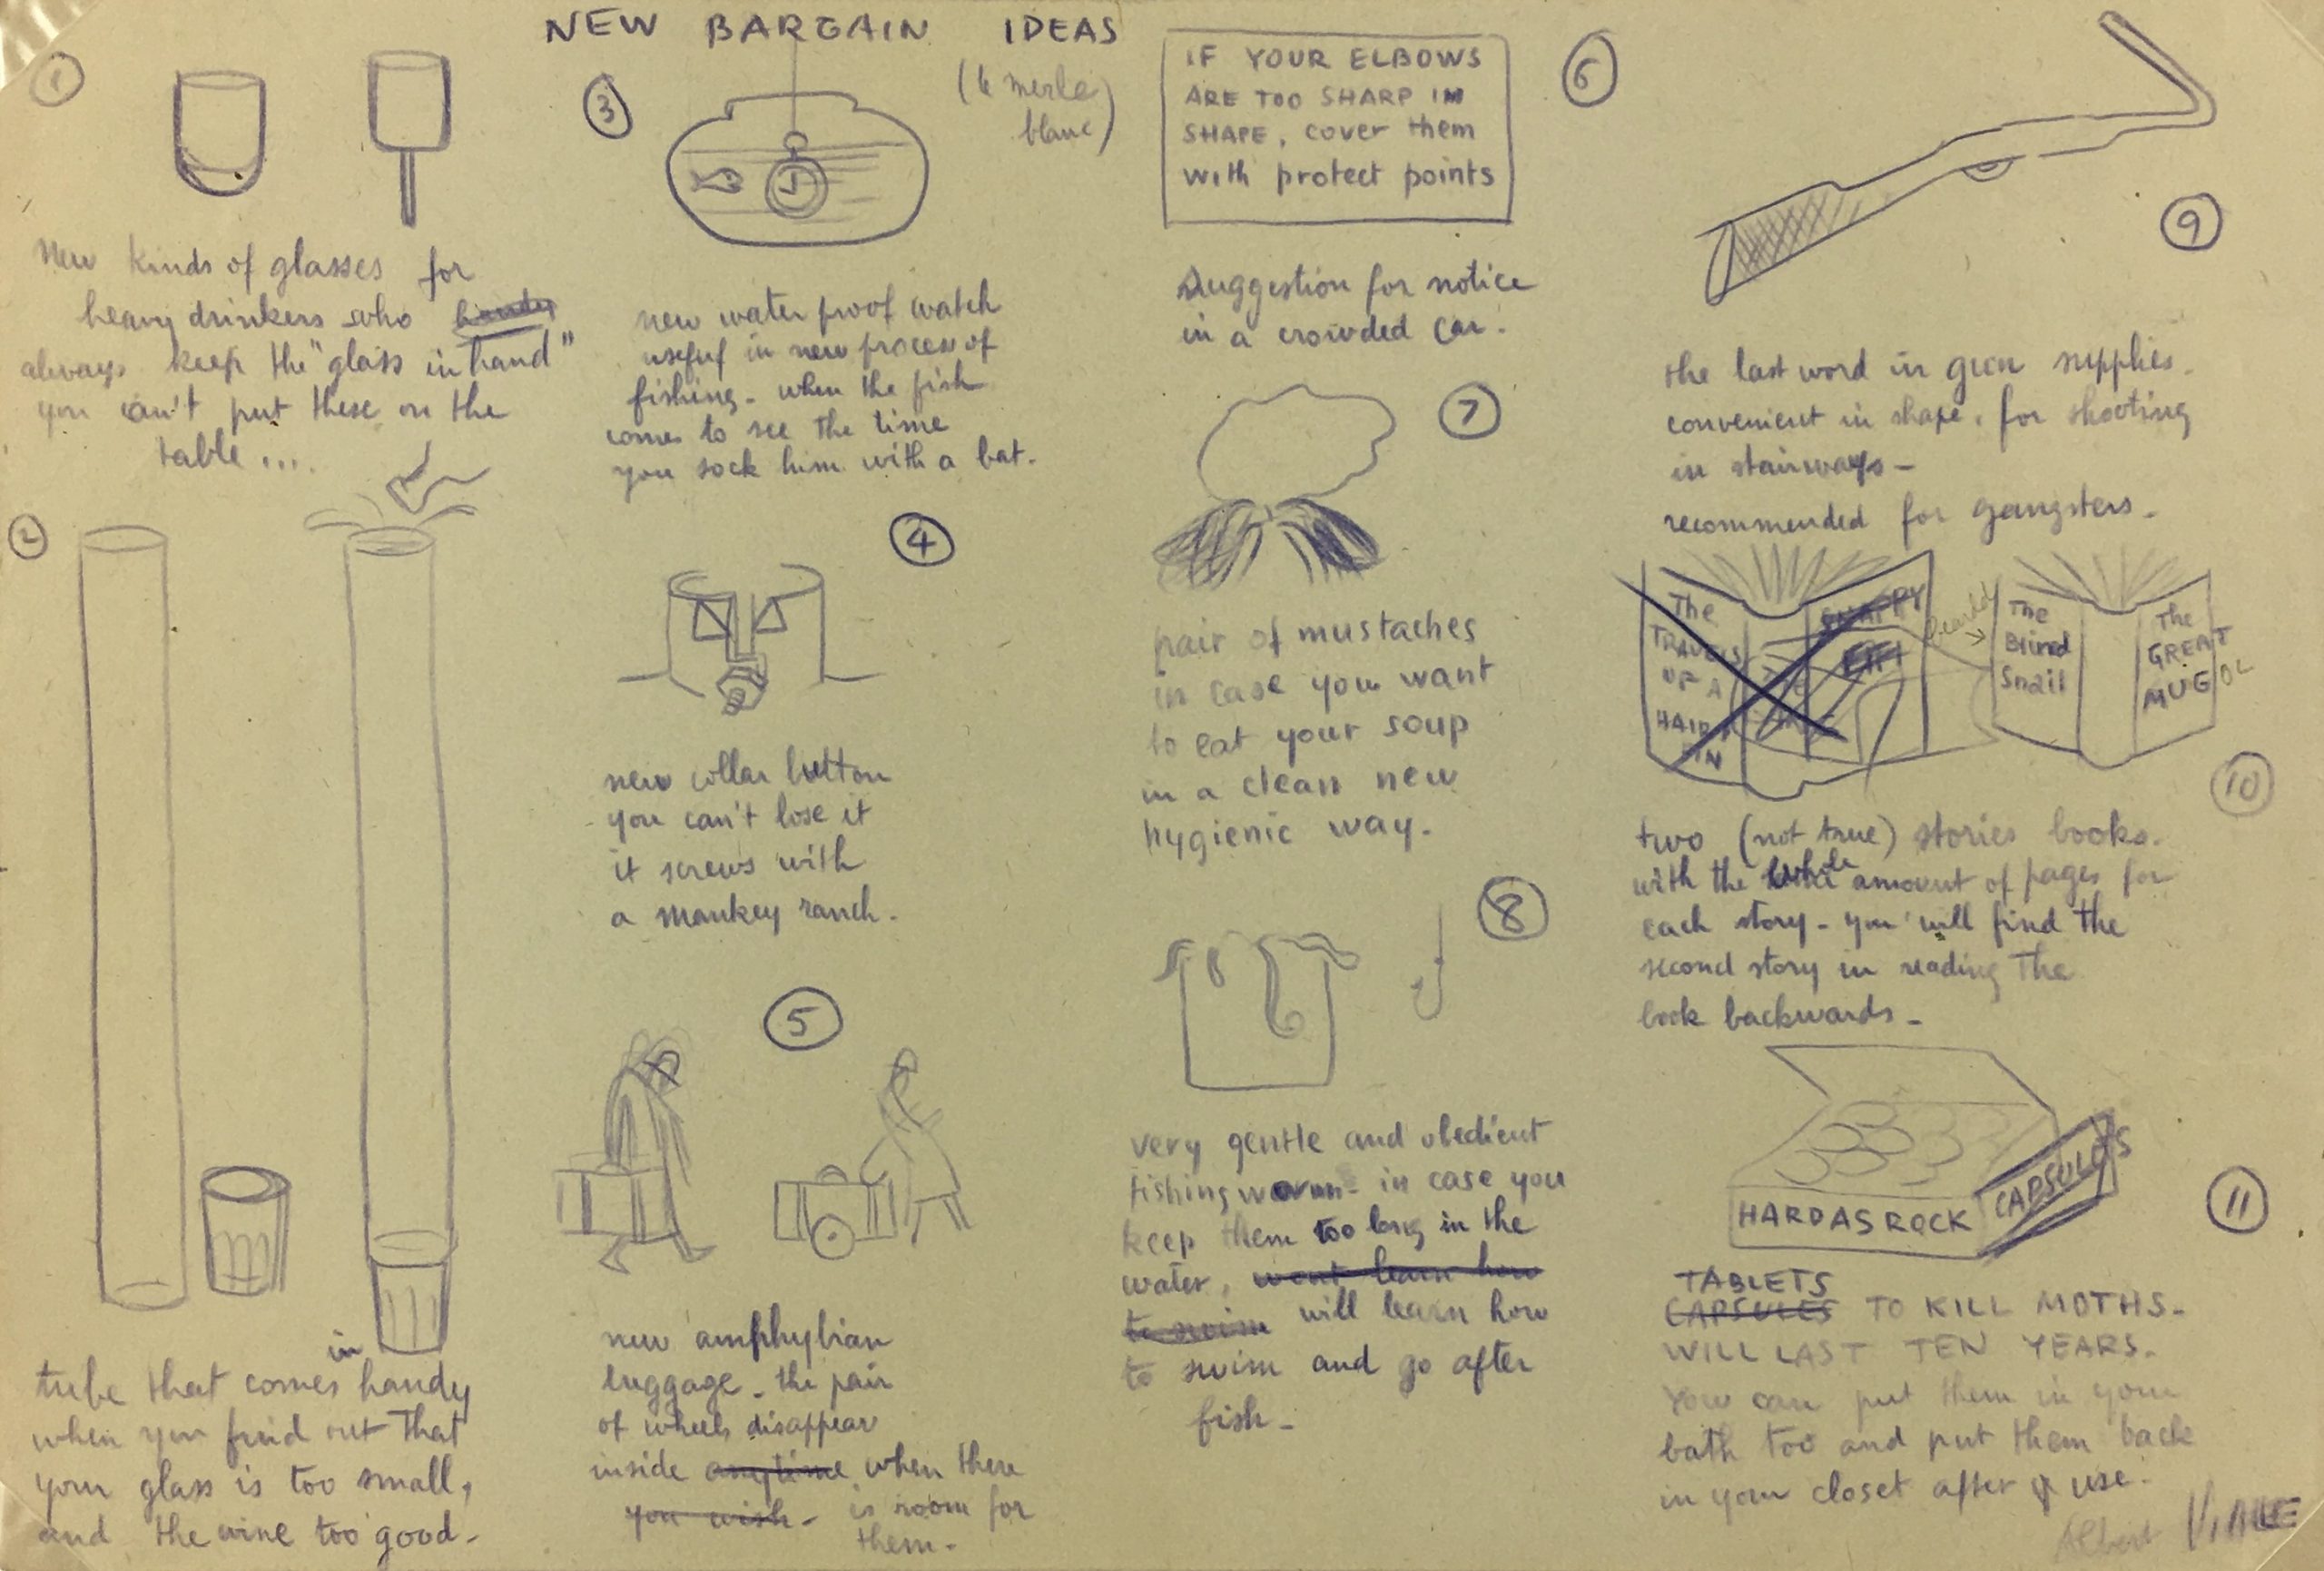 NEW BARGAIN IDEAS
(le merle
blanc)
1
new kinds of glasses for
heavy drinkers who handy
always keep the "glass in hand"
you can't put these on the
table ...
2
tube that comes in handy
when you find out that
your glass is too small,
and the wine too good-
3
new water proof watch
useful in new process of
fishing- when the fish
comes to see the time
you sock him with a bat.
4
new collar button
you can't lose it
it screws with
a monkey ranch.
5
new amphybian
luggage- the pair
of wheels disappear
inside anytime when there
you wish- is room for
them-
6
IF YOUR ELBOWS
ARE TOO SHARP IN
SHAPE, cover them
with protect points
suggestion for notice
in a crowded car.
7
pair of mustaches
in case you want
to eat your soup
in a clean new
hygienic way.
8
very gentle and obedient
fishing worm- in case you
keep them too long in the
water, wont learn how
to swim will learn how
to swim and go after
fish-
9
the last word in gun supplies.
convenient in shape, for shooting
in stairways-
recommended for gangsters-
10
The
TRAVELS
OF A
HAIR
PIN
SNAPPY
FIFI
The
Blind
Snail
The
GREAT
MUGOL
two (not true) stories books.
with the whole amount of pages for
each story- you will find the
second story in reading the
book backwards-
11
HARD AS ROCK
CAPSULES
TABLETS
CAPSULES TO KILL MOTHS-
WILL LAST TEN YEARS.
You can put them in your
bath too and put them back
in your closet after use.
Albert VIALE